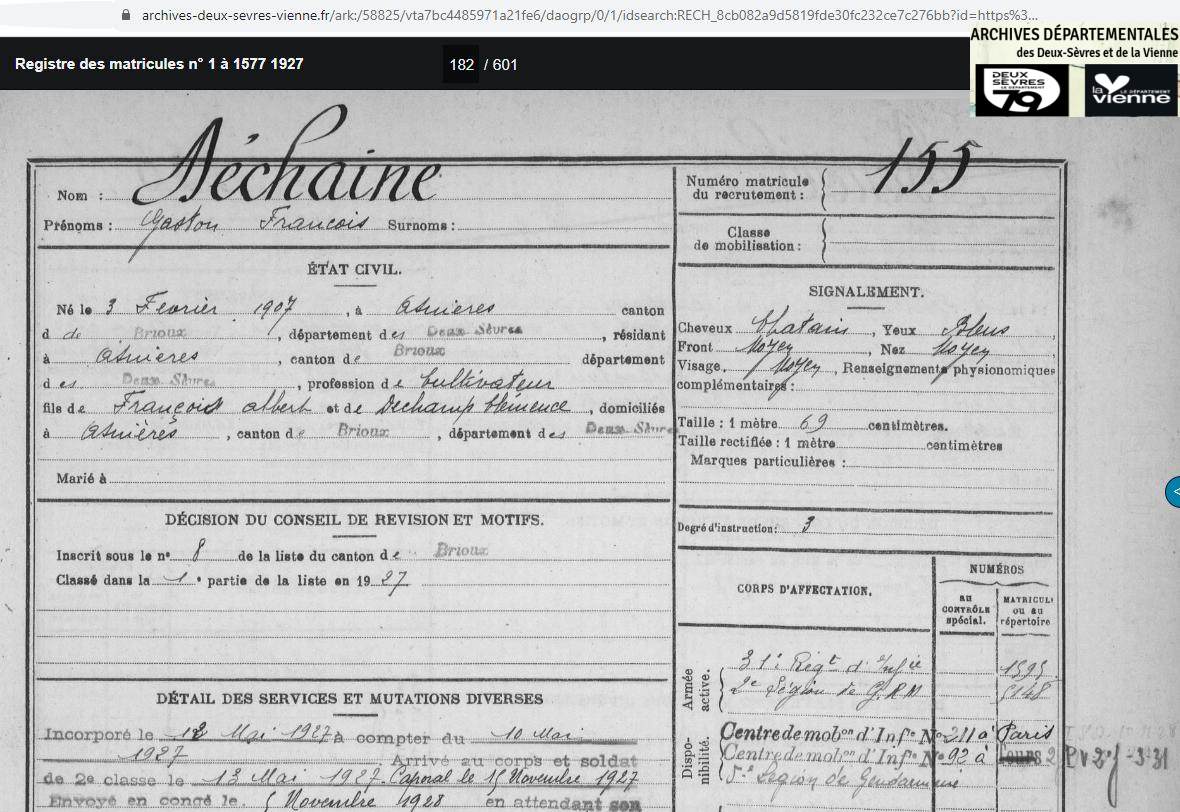 archives-deux-sevres-vienne.fr/ark:/58825/vta7bc4485971a21fe6/daogrp/0/1/idsearch:RECH_8cb082a9d5819fde30fc232ce7c276bb?id=https%3...
ARCHIVES DÉPARTEMENTALES
des Deux-Sèvres et de la Vienne
DEUX SÈVRES LE DÉPARTEMENT 79
la vienne LE DÉPARTEMENT
Registre des matricules n° 1 à 1577 1927
182 / 601
Nom : Déchaine
Prénoms : Gaston Francois Surnoms :
ÉTAT CIVIL.
Né le 3 Fevrier 1907, à Asnieres canton
d de Brioux, département des Deux Sèvres, résidant
à Asnieres, canton de Brioux département
des Deux Sèvres, profession de Cultivateur
fils de François albert et de Dechamp Clémence, domiciliés
à Asnières, canton de Brioux, département des Deux Sèvres
Marié à
DÉCISION DU CONSEIL DE REVISION ET MOTIFS.
Inscrit sous le n° 8 de la liste du canton de Brioux
Classé dans la 1e partie de la liste en 1927
DÉTAIL DES SERVICES ET MUTATIONS DIVERSES
Incorporé le 12 Mai 1927 à compter du 10 Mai
1927 Arrivé au corps et soldat
de 2e classe le 13 Mai 1927. Caporal le 15 Novembre 1927
Envoyé en congé le Novembre 1928 en attendant son
Numéro matricule
du recrutement : 155
Classe
de mobilisation :
SIGNALEMENT.
Cheveux Chatain, Yeux Bleus
Front Moyen, Nez Moyen
Visage, Moyen, Renseignements physionomiques
complémentaires :
Taille : 1 mètre 69 centimètres.
Taille rectifiée : 1 mètre centimètres
Marques particulières :
Degré d'instruction : 3
CORPS D'AFFECTATION.
NUMÉROS
au CONTRÔLE spécial.
MATRICULE ou au répertoire
Armée active.
31e Régt d'Infie 1595
2e Légion de G.R.M 5148
Disponibilité.
Centre de mobon d'Infie N° 211 à Paris
Centre de mobon d'Infie N° 92 à Tours
Légion de Gendarmerie